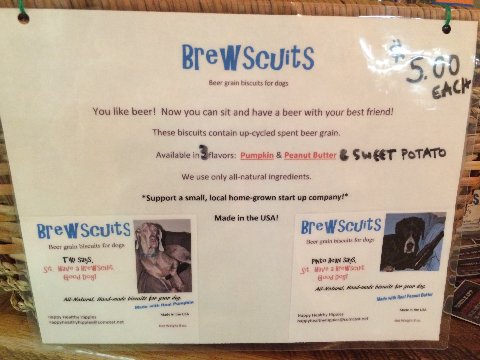 BrewScuits
Beer grain biscuits for dogs
$5.00
EACH
You like beer! Now you can sit and have a beer with your best friend!
These biscuits contain up-cycled spent beer grain.
Available in 3 flavors: Pumpkin & Peanut Butter & SWEET POTATO
We use only all-natural ingredients.
*Support a small, local home-grown start up company!*
Made in the USA!
BrewScuits
Beer grain biscuits for dogs
says,
Sit. Have a BrewScuit.
Good Dog!
All-Natural, Hand-made biscuits for your dog.
Made with Real Pumpkin
Happy Healthy Hippies
happyhealthyhippies@comcast.net
Made in the USA
Net Weight 8 oz.
BrewScuits
Beer grain biscuits for dogs
says,
Sit. Have a BrewScuit.
Good Dog!
All-Natural, Hand-made biscuits for your dog.
Made with Real Peanut Butter
Happy Healthy Hippies
happyhealthyhippies@comcast.net
Made in the USA
Net Weight 8 oz.